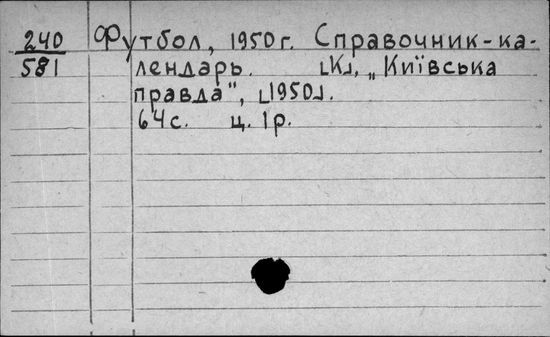 240 Футбол, 1950г. Справочник-ка-
581 лендарь. [К], „Київська
правда", [1950].
64с. ц. 1р.